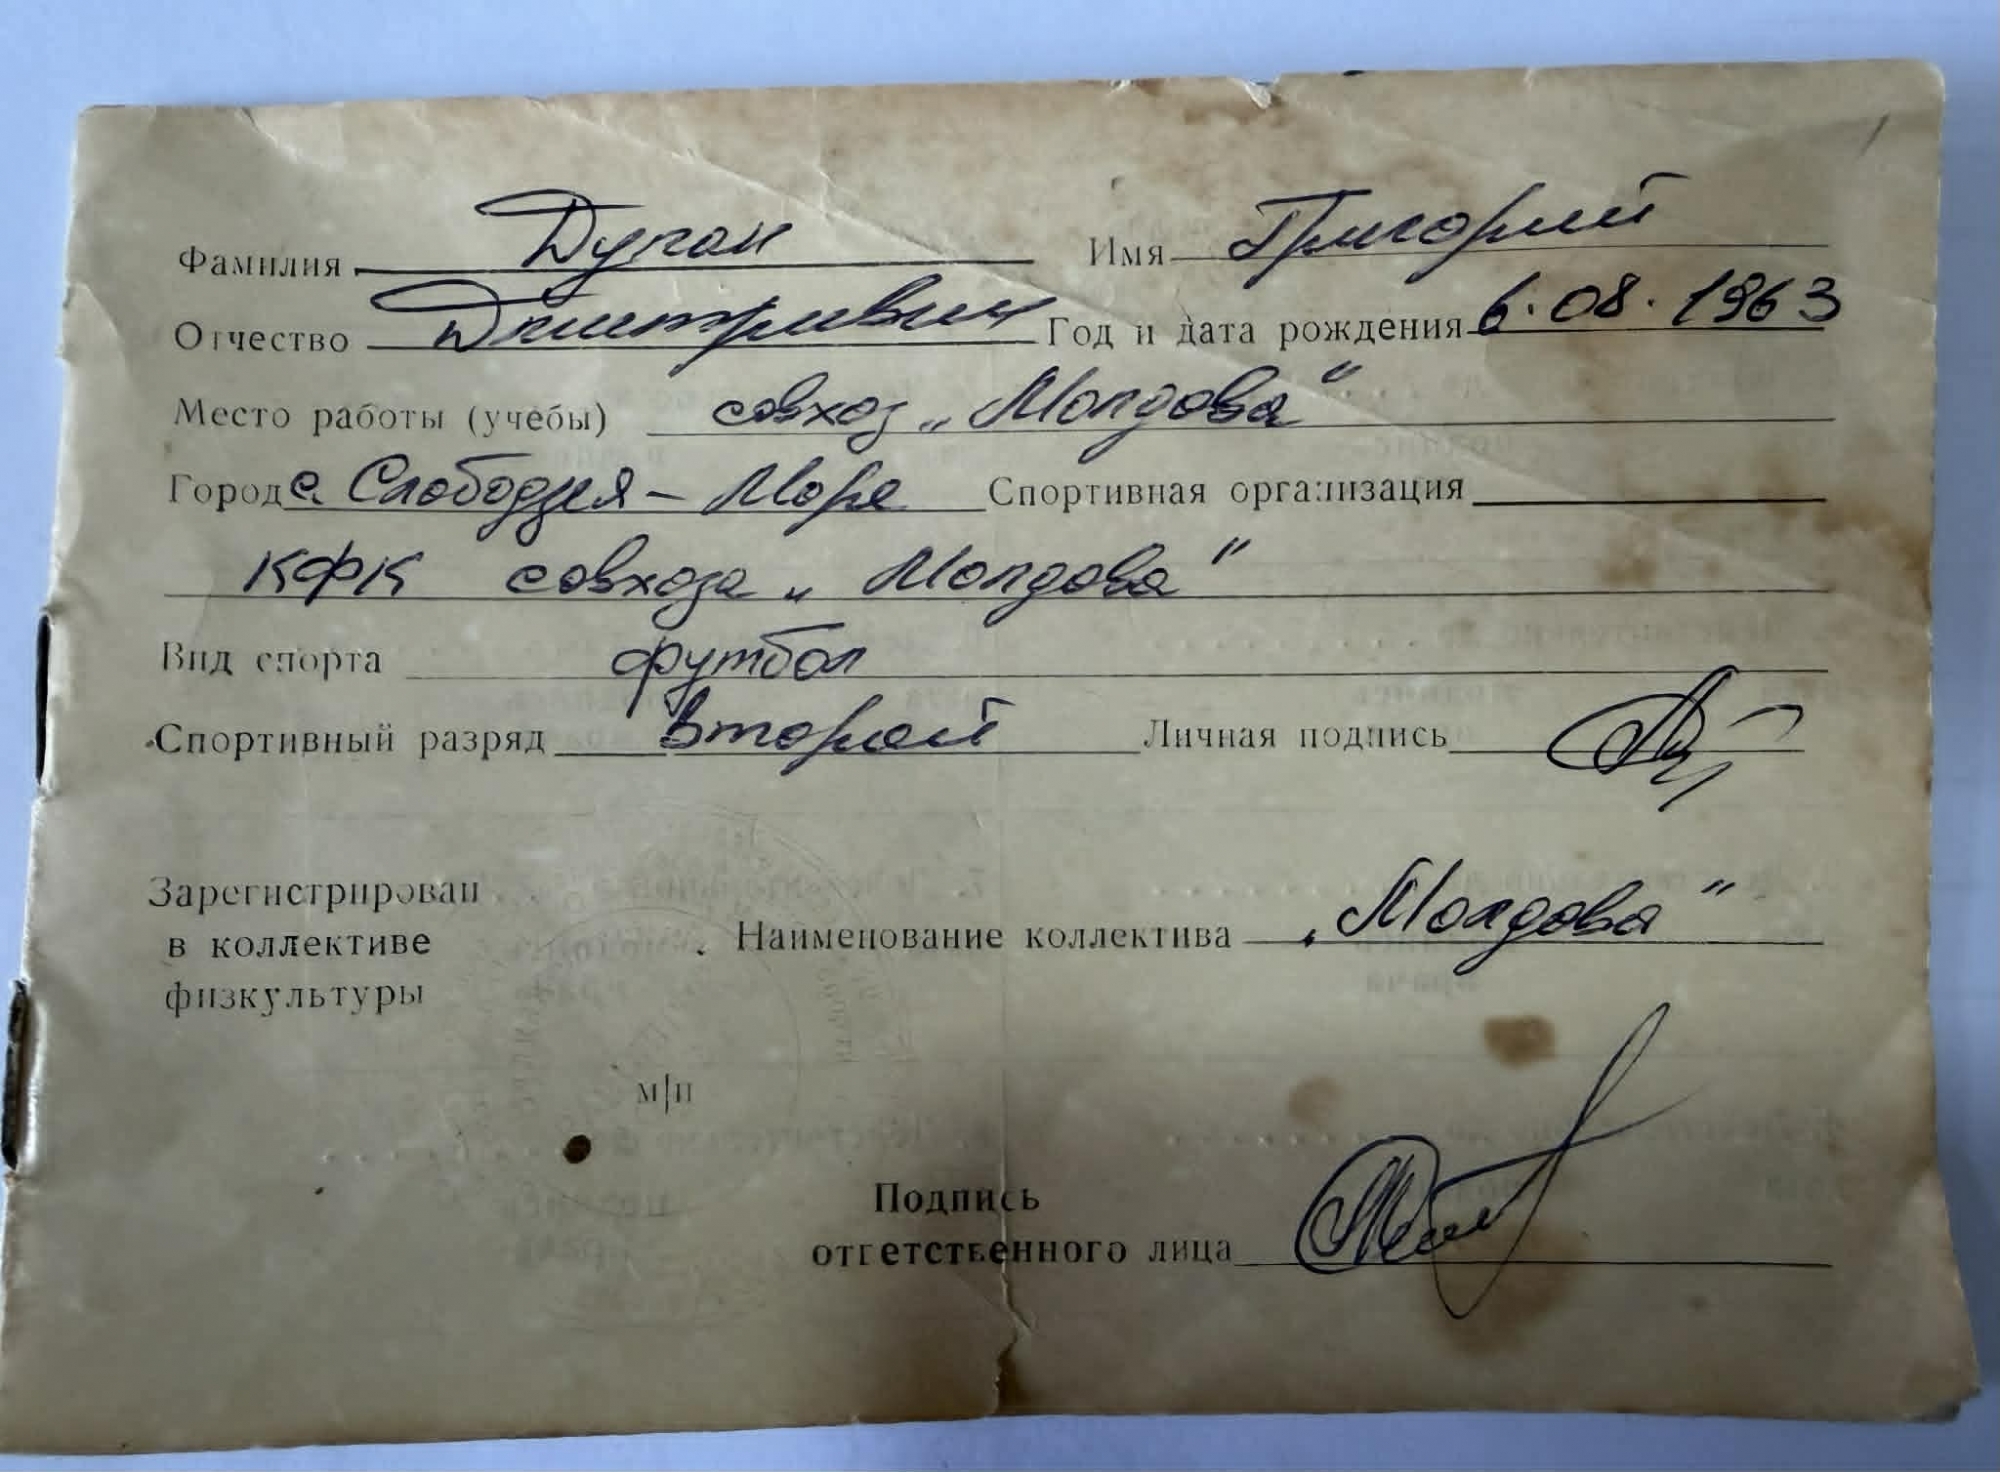 Фамилия Дуган Имя Григорий
Отчество Дмитривич Год и дата рождения 6.08.1963
Место работы (учебы) совхоз „Молдова“
Город с. Слободзея – Маре Спортивная организация
КФК совхоза „Молдова“
Вид спорта футбол
Спортивный разряд второй Личная подпись
Зарегистрирован
в коллективе
физкультуры
Наименование коллектива „Молдова“
м/п
Подпись
ответственного лица